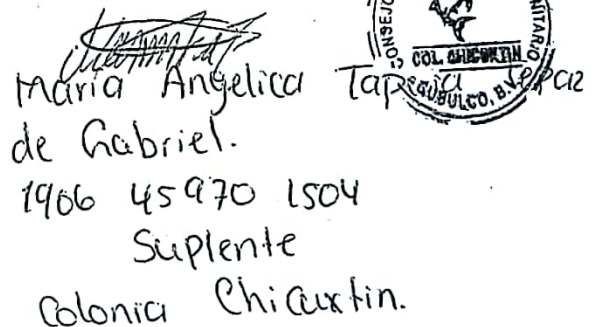 CONSEJO
NITARIO
COL. CHICUXTIN
CUBULCO, B.V.
Maria Angelica
de Gabriel.
1906 45970 1504
Suplente
Colonia Chicuxtin.